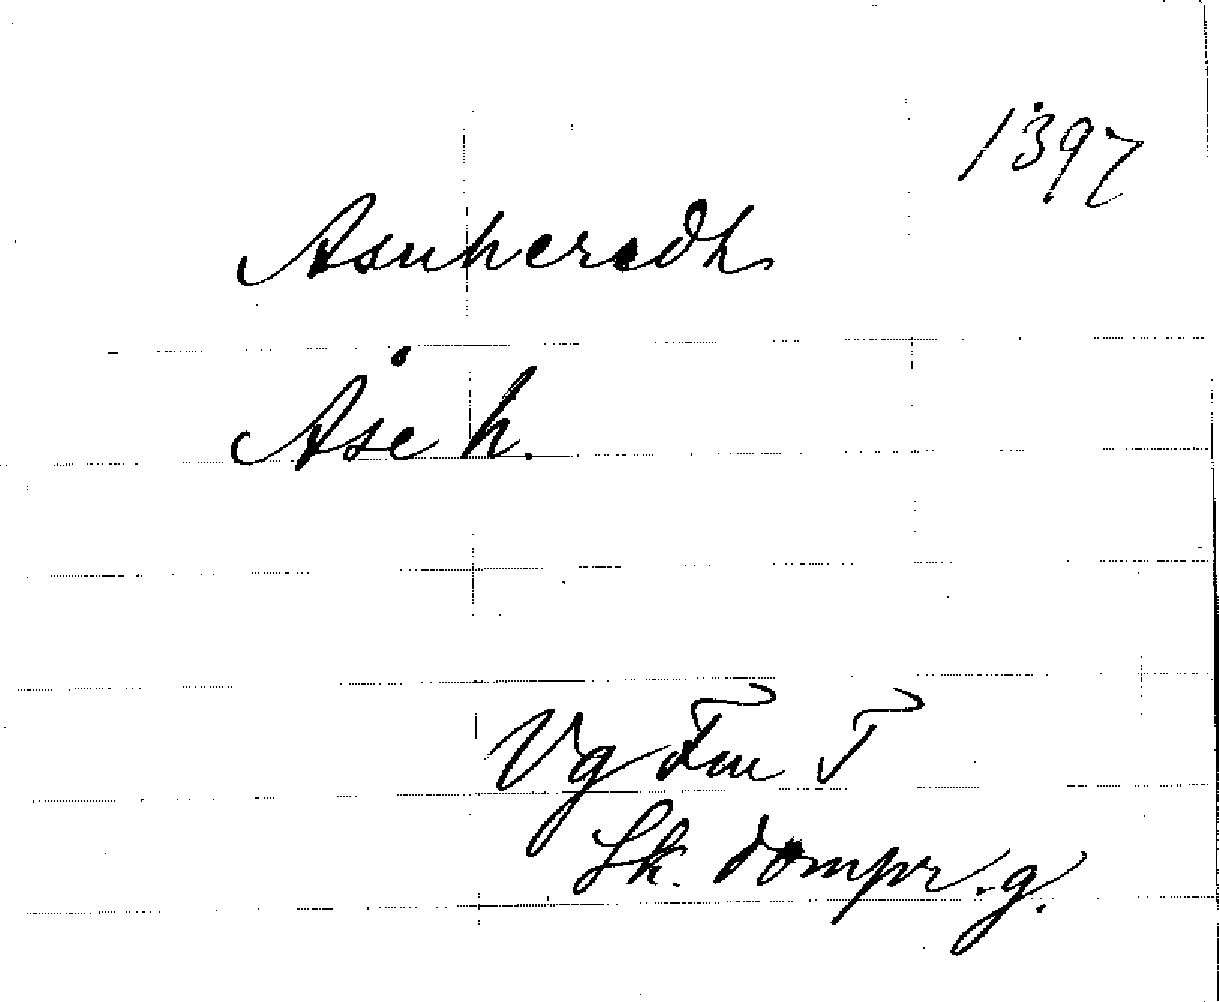 1397
Asuheredh
Åse h.
Vg Fm I
Sk. dompr. g.